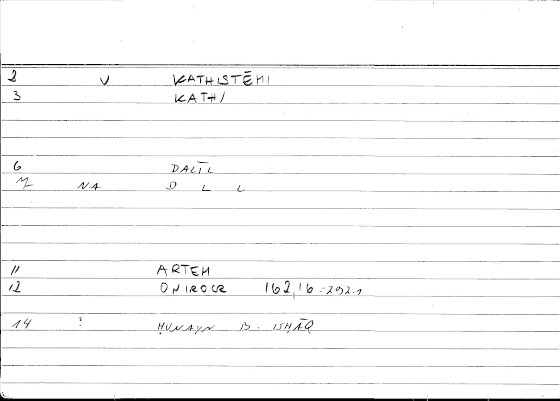 2 V KATHISTĒMI
3 KATHI
6 DALĪL
NA D L L
11 ARTEM
12 ONIROCR 162,16 = 292.1
14 ? ḤUNAYN B. ISḤĀQ